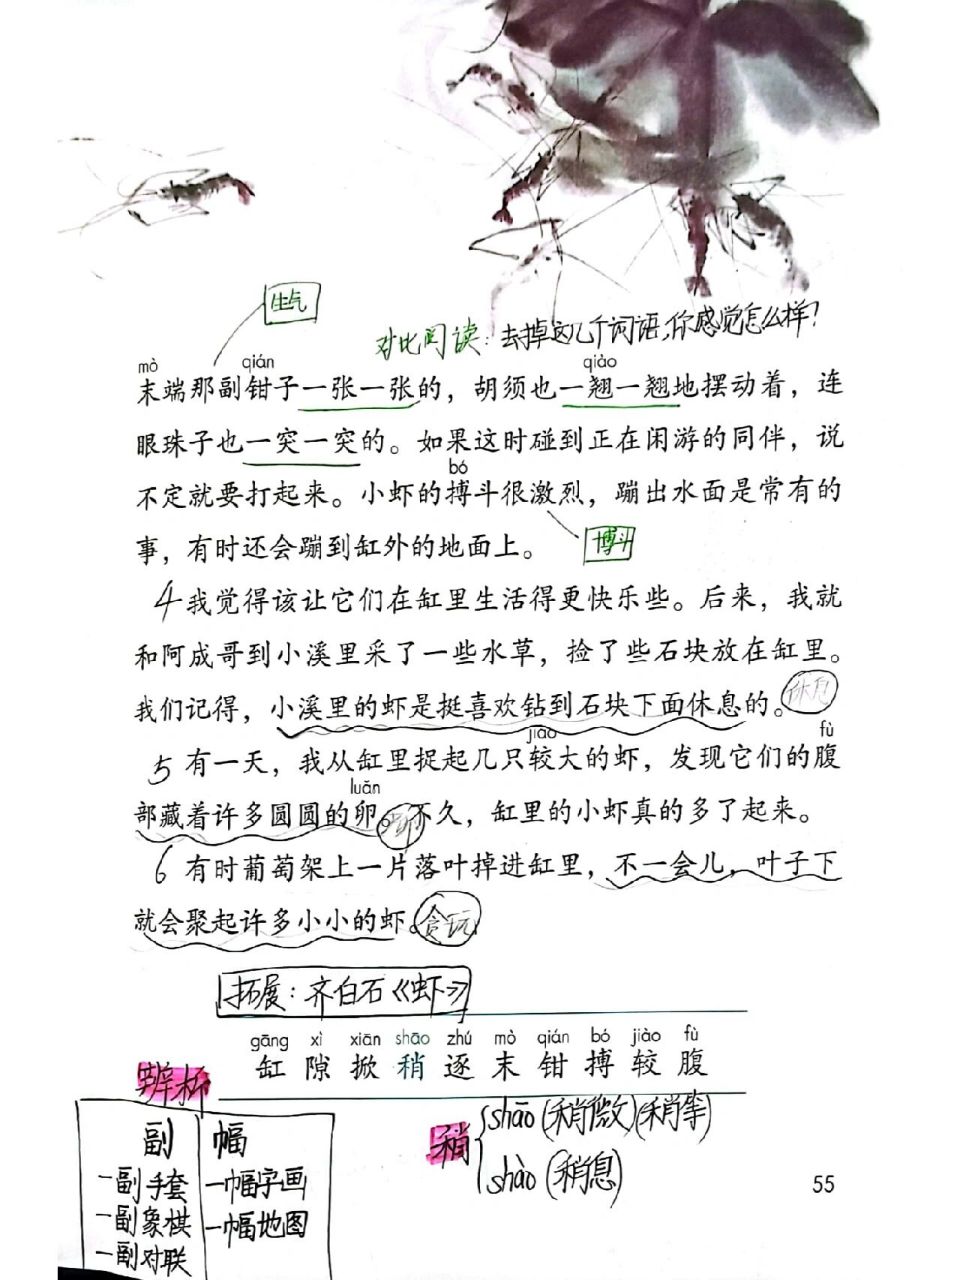 生气
对比阅读：去掉这几个词语，你感觉怎么样？
mò qián qiào
末端那副钳子一张一张的，胡须也一翘一翘地摆动着，连
眼珠子也一突一突的。如果这时碰到正在闲游的同伴，说
bó
不定就要打起来。小虾的搏斗很激烈，蹦出水面是常有的
事，有时还会蹦到缸外的地面上。
博斗
4 我觉得该让它们在缸里生活得更快乐些。后来，我就
和阿成哥到小溪里采了一些水草，捡了些石块放在缸里。
我们记得，小溪里的虾是挺喜欢钻到石块下面休息的。
休息
jiào fù
5 有一天，我从缸里捉起几只较大的虾，发现它们的腹
luǎn
部藏着许多圆圆的卵。不久，缸里的小虾真的多了起来。
6 有时葡萄架上一片落叶掉进缸里，不一会儿，叶子下
就会聚起许多小小的虾。
贪玩
拓展：齐白石《虾》
gāng xì xiān shāo zhú mò qián bó jiào fù
缸 隙 掀 稍 逐 末 钳 搏 较 腹
辨析
副 幅
一副手套 一幅字画
一副象棋 一幅地图
一副对联
稍 shāo（稍微）（稍等）
shào（稍息）
55